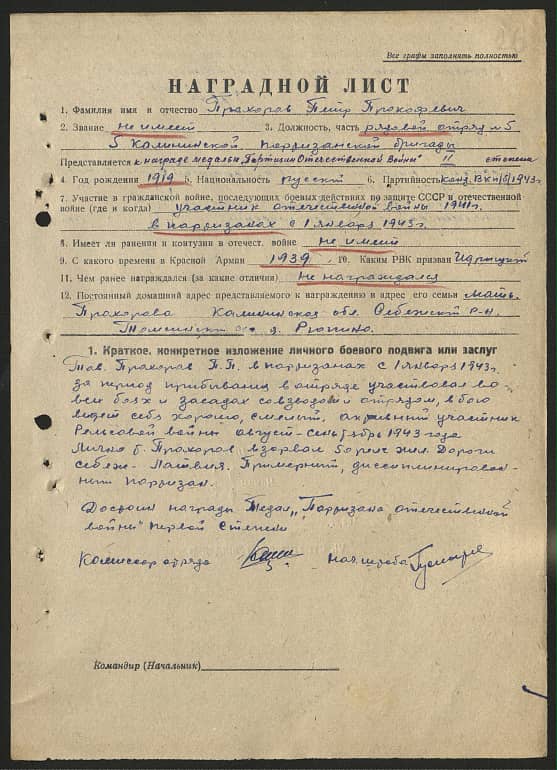 Все графы заполнять полностью
НАГРАДНОЙ ЛИСТ
1. Фамилия имя и отчество Прохоров Пётр Прокофьевич
2. Звание не имеет 3. Должность, часть рядовой отряд №5
5 Калининской партизанской бригады
Представляется к награде медалью "Партизан Отечественной Войны" II степени
4. Год рождения 1919 5. Национальность русский 6. Партийность канд. ВКП(б) 1943 г.
7. Участие в гражданской войне, последующих боевых действиях по защите СССР и отечественной
войне (где и когда) участник отечественной войны 1941 г.
в партизанах с 1 января 1943 г.
8. Имеет ли ранения и контузии в отечест. войне не имеет
9. С какого времени в Красной Армии 1939 10. Каким РВК призван Идрицкий
11. Чем ранее награждался (за какие отличия) Не награждался
12. Постоянный домашний адрес представляемого к награждению и адрес его семьи мать
Прохорова Калининская обл. Себежский р-н.
д.
1. Краткое, конкретное изложение личного боевого подвига или заслуг
Тов. Прохоров П.П. в партизанах с 1 января 1943 г.
за период прибывания в отряде участвовал во
всех боях и засадах совзводом и отрядом, в бою
ведет себя хорошо, смелый, активный участник
Рельсовой войны август-сентябрь 1943 года
Лично т. Прохоров взорвал 50 рельс жел. Дороги
Себеж - Латвия. Примерный, дисциплинирован-
ный партизан.
Достоин награды Медали "Партизана отечественной
войны" первой степени
Комиссар отряда нач. штаба
Командир (Начальник)